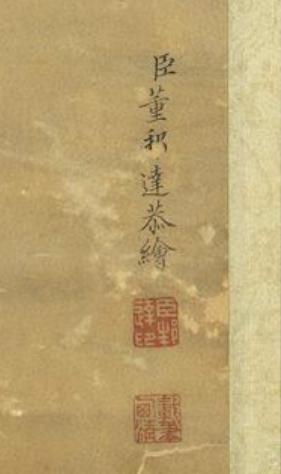 臣董邦達恭繪
臣邦達印